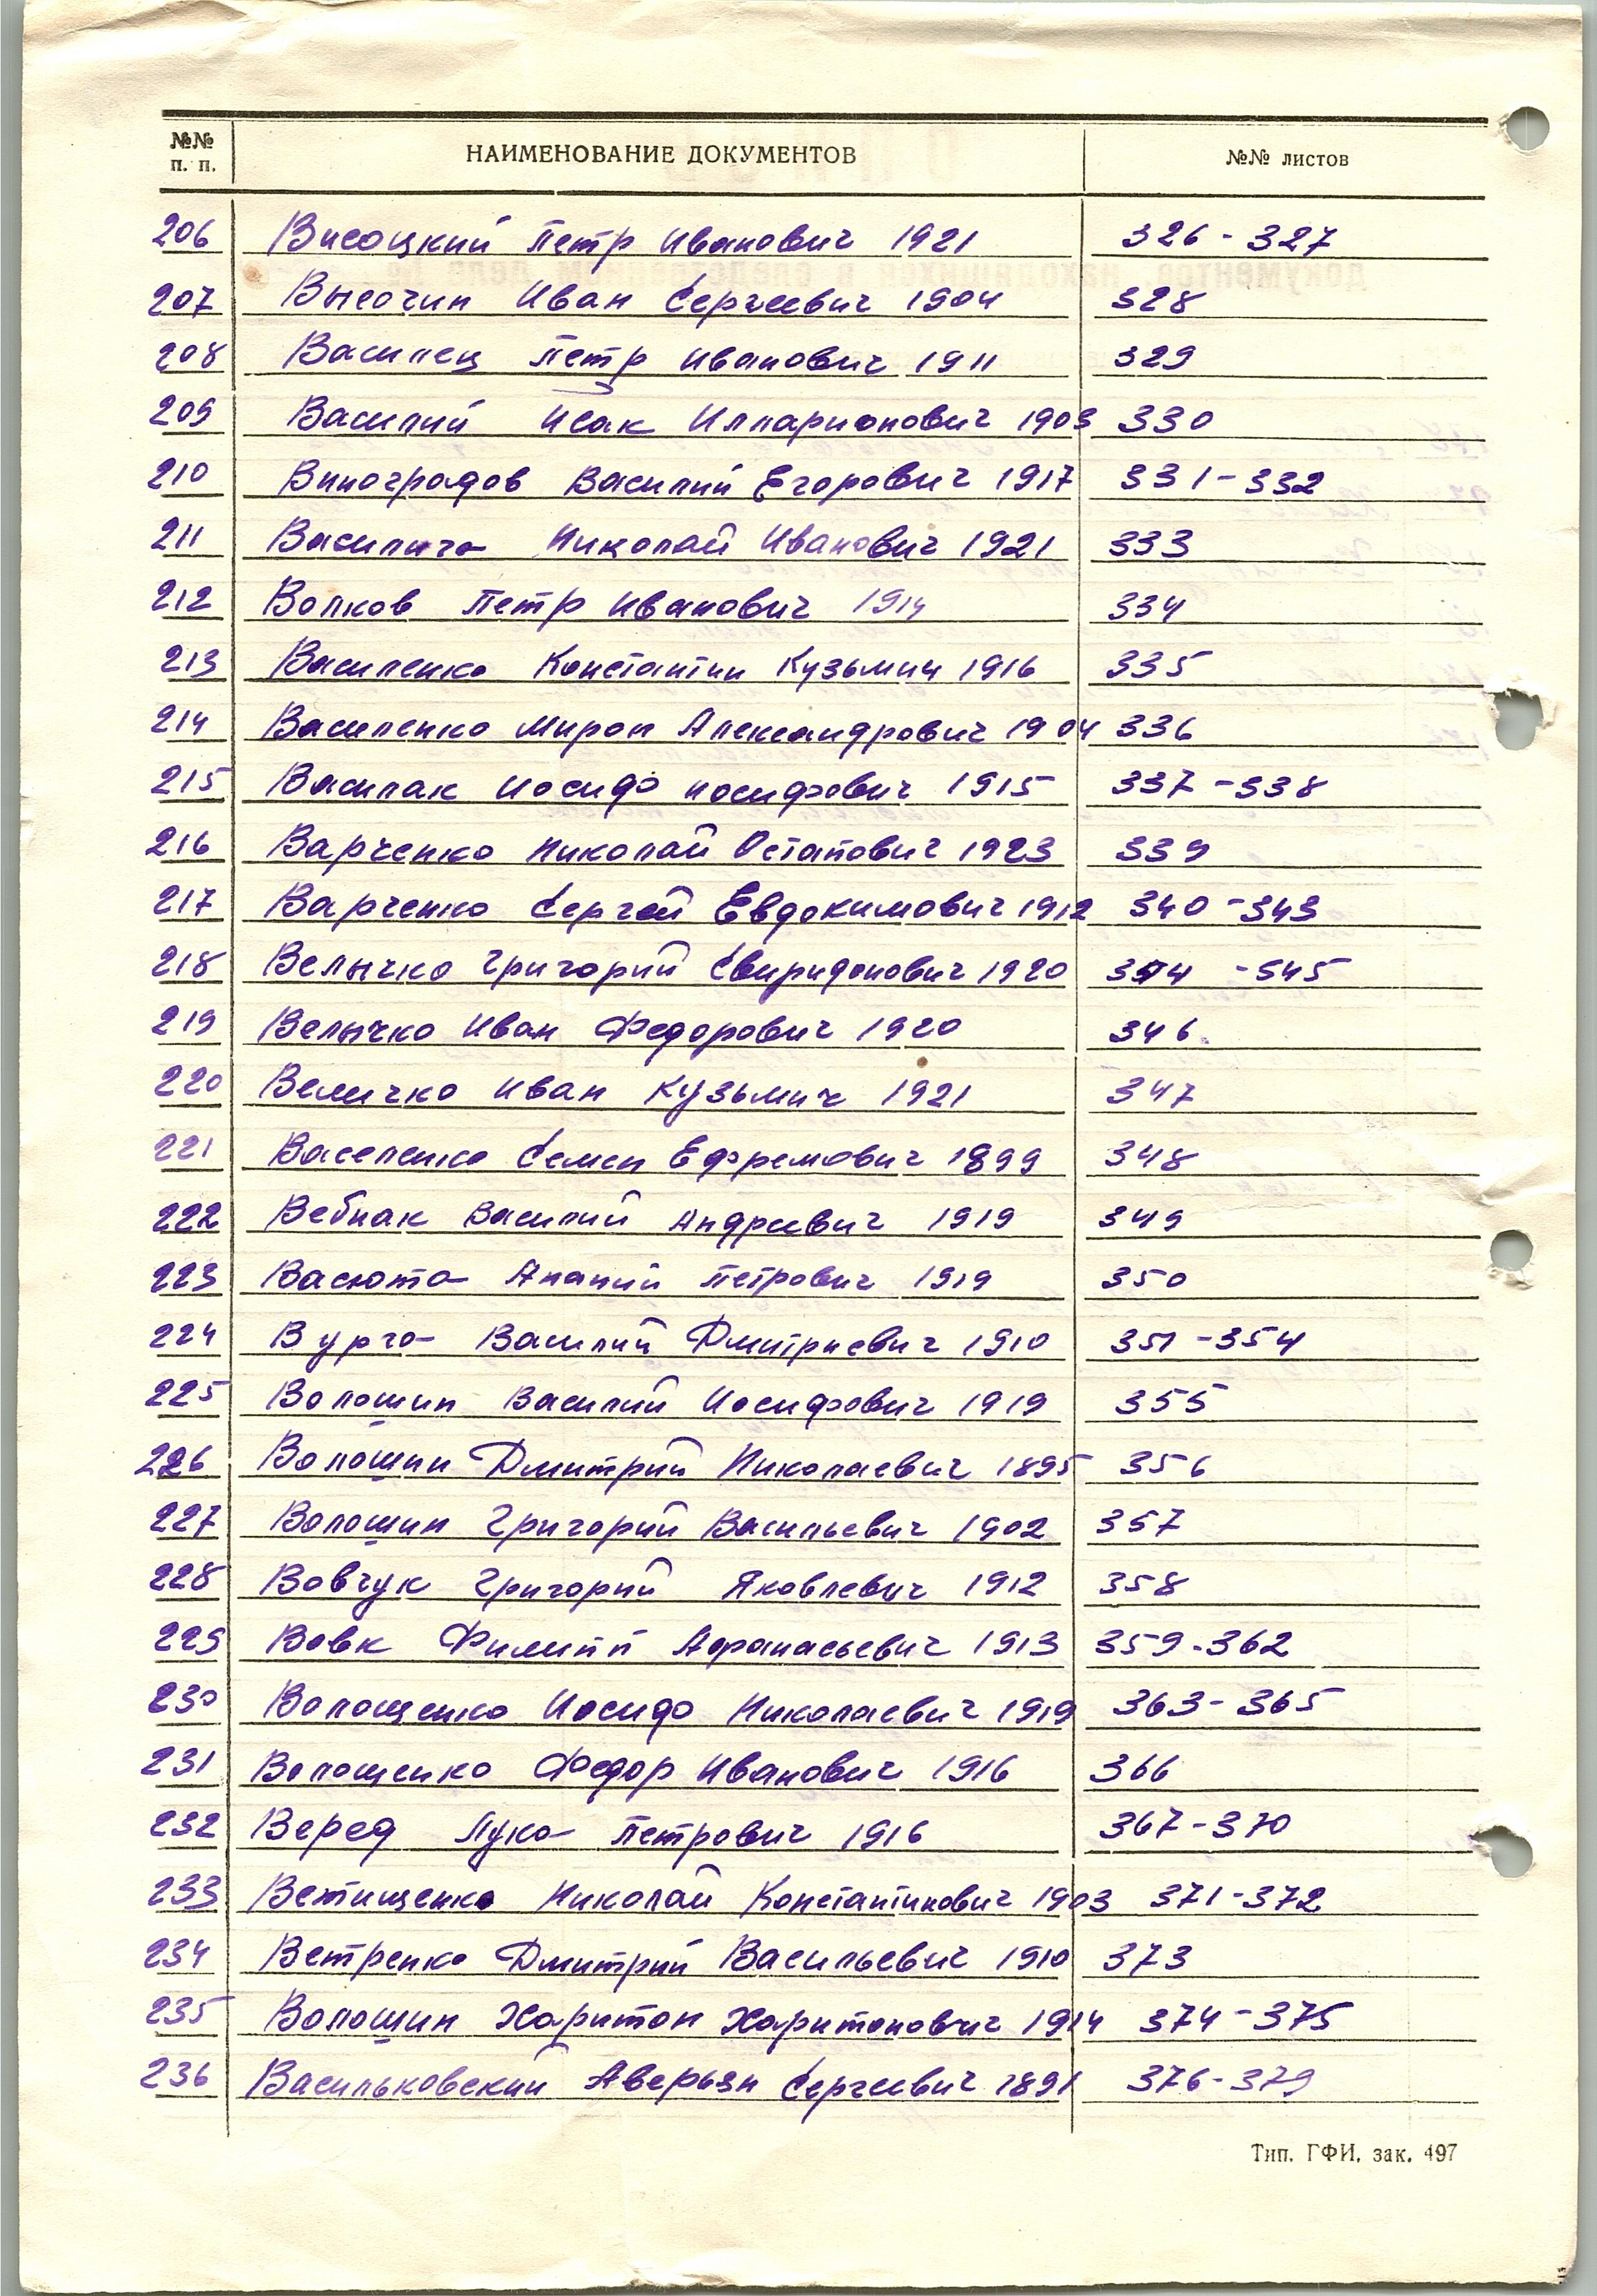 №№ п. п. НАИМЕНОВАНИЕ ДОКУМЕНТОВ №№ листов
206 Висоцкий Петр Иванович 1921 326-327
207 Высочин Иван Сергеевич 1904 328
208 Василец Петр Иванович 1911 329
209 Василий Исак Илларионович 1903 330
210 Виноградов Василий Егорович 1917 331-332
211 Василига Николай Иванович 1921 333
212 Волков Петр Иванович 1914 334
213 Василенко Константин Кузьмич 1916 335
214 Василенко Мирон Александрович 1904 336
215 Василак Иосиф Иосифович 1915 337-338
216 Варченко Николай Остапович 1923 339
217 Варченко Сергей Евдокимович 1912 340-343
218 Велычко Григорий Свиридонович 1920 344-345
219 Велычко Иван Федорович 1920 346
220 Величко Иван Кузьмич 1921 347
221 Васеленко Семен Ефремович 1899 348
222 Вебнак Василий Андреевич 1919 349
223 Васюта Ананий Петрович 1919 350
224 Вурга Василий Дмитриевич 1910 351-354
225 Волошин Василий Иосифович 1919 355
226 Волошин Дмитрий Николаевич 1895 356
227 Волошин Григорий Васильевич 1902 357
228 Вовчук Григорий Яковлевич 1912 358
229 Вовк Филипп Афанасьевич 1913 359-362
230 Волощенко Иосиф Николаевич 1919 363-365
231 Волощенко Федор Иванович 1916 366
232 Веред Лука Петрович 1916 367-370
233 Ветищенко Николай Константинович 1903 371-372
234 Ветренко Дмитрий Васильевич 1910 373
235 Волошин Харитон Харитонович 1914 374-375
236 Васильковский Аверьян Сергеевич 1891 376-379
Тип. ГФИ, зак. 497